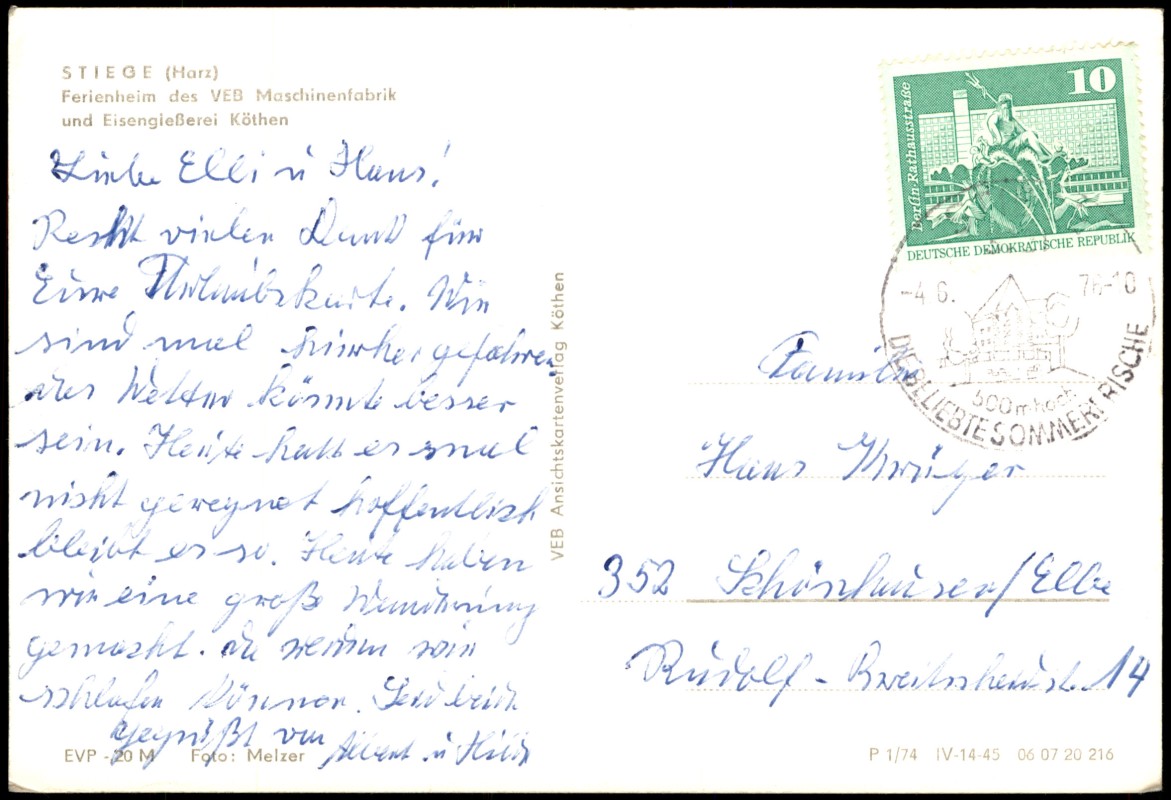 STIEGE (Harz)
Ferienheim des VEB Maschinenfabrik
und Eisengießerei Köthen
Liebe Elli u Hans!
Recht vielen Dank für
Eure Urlaubskarte. Wir
sind mal hierher gefahren
das Wetter könnte besser
sein. Heute hatt es mal
nicht geregnet hoffentlich
bleibt es so. Heute haben
wir eine große Wanderung
gemacht. da werden wir
schlafen können. Seid beide
gegrüßt von Albert u Hilde
EVP -20 M Foto: Melzer
VEB Ansichtskartenverlag Köthen
10
Berlin-Rathausstraße
DEUTSCHE DEMOKRATISCHE REPUBLIK
-4.6. 76-10
500 m hoch
DIE BELIEBTE SOMMERFRISCHE
Familie
Hans Krüger
352 Schönhausen/Elbe
Rudolf-Breitscheidst. 14
P 1/74 IV-14-45 06 07 20 216